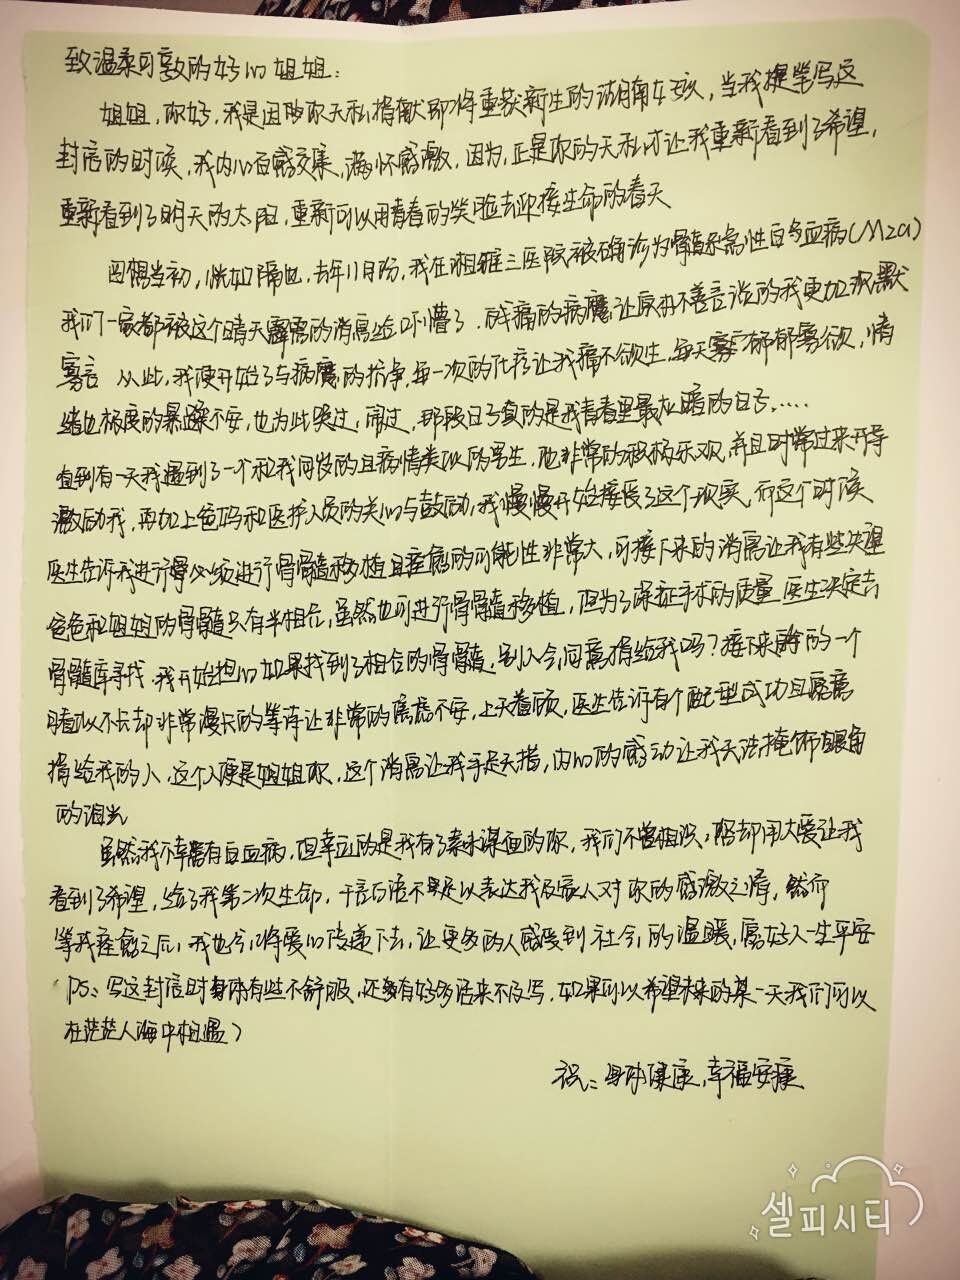 致温柔可敬的好心姐姐：
姐姐，你好，我是因为你无私捐献即将重获新生的湖南女孩，当我提笔写这
封信的时候，我内心百感交集，满怀感激，因为，正是你的无私才让我重新看到了希望，
重新看到了明天的太阳，重新可以用青春的笑脸去迎接生命的春天
回想当初，恍如隔世，去年11月份，我在湘雅三医院被确诊为骨髓系急性白血病(M2a)
我们一家都被这个晴天霹雳的消息给吓懵了，病痛的病魔让原本不善言谈的我更加沉默
寡言 从此，我便开始了与病魔的抗争，每一次的化疗让我痛不欲生，每天寡言郁郁寡欢，情
绪也极度的暴躁不安，也为此哭过，闹过，那段日子真的是我青春里最灰暗的日子.....
直到有一天我遇到了一个和我同岁的且病情类似的男生，他非常的积极乐观，并且时常过来开导
激励我，再加上爸妈和医护人员的关心与鼓励，我慢慢开始接受了这个现实，而这个时候
医生告诉我进行必须进行骨髓移植且痊愈的可能性非常大，可接下来的消息让我有些失望
爸爸和姐姐的骨髓只有半相合，虽然也可进行骨髓移植，但为了保证手术的质量 医生决定去
骨髓库寻找，我开始担心如果找到了相合的骨髓，别人会同意捐给我吗？接下来的一个
月看似不长却非常漫长的等待让非常的焦虑不安，上天眷顾，医生告诉有个配型成功且愿意
捐给我的人，这个人便是姐姐你，这个消息让我手足无措，内心的感动让我无法掩饰眼角
的泪光
虽然我不幸患有白血病，但幸运的是我有了素未谋面的你，我们不曾相识，你却用大爱让我
看到了希望，给了我第二次生命，千言万语不足以表达我及家人对你的感激之情，然而
等我痊愈之后，我也会将爱心传递下去，让更多的人感受到社会的温暖，愿好人一生平安
PS：写这封信时身体有些不舒服，还有好多话来不及写，如果可以希望未来的某一天我们可以
在茫茫人海中相遇）
祝：身体健康，幸福安康
셀피시티